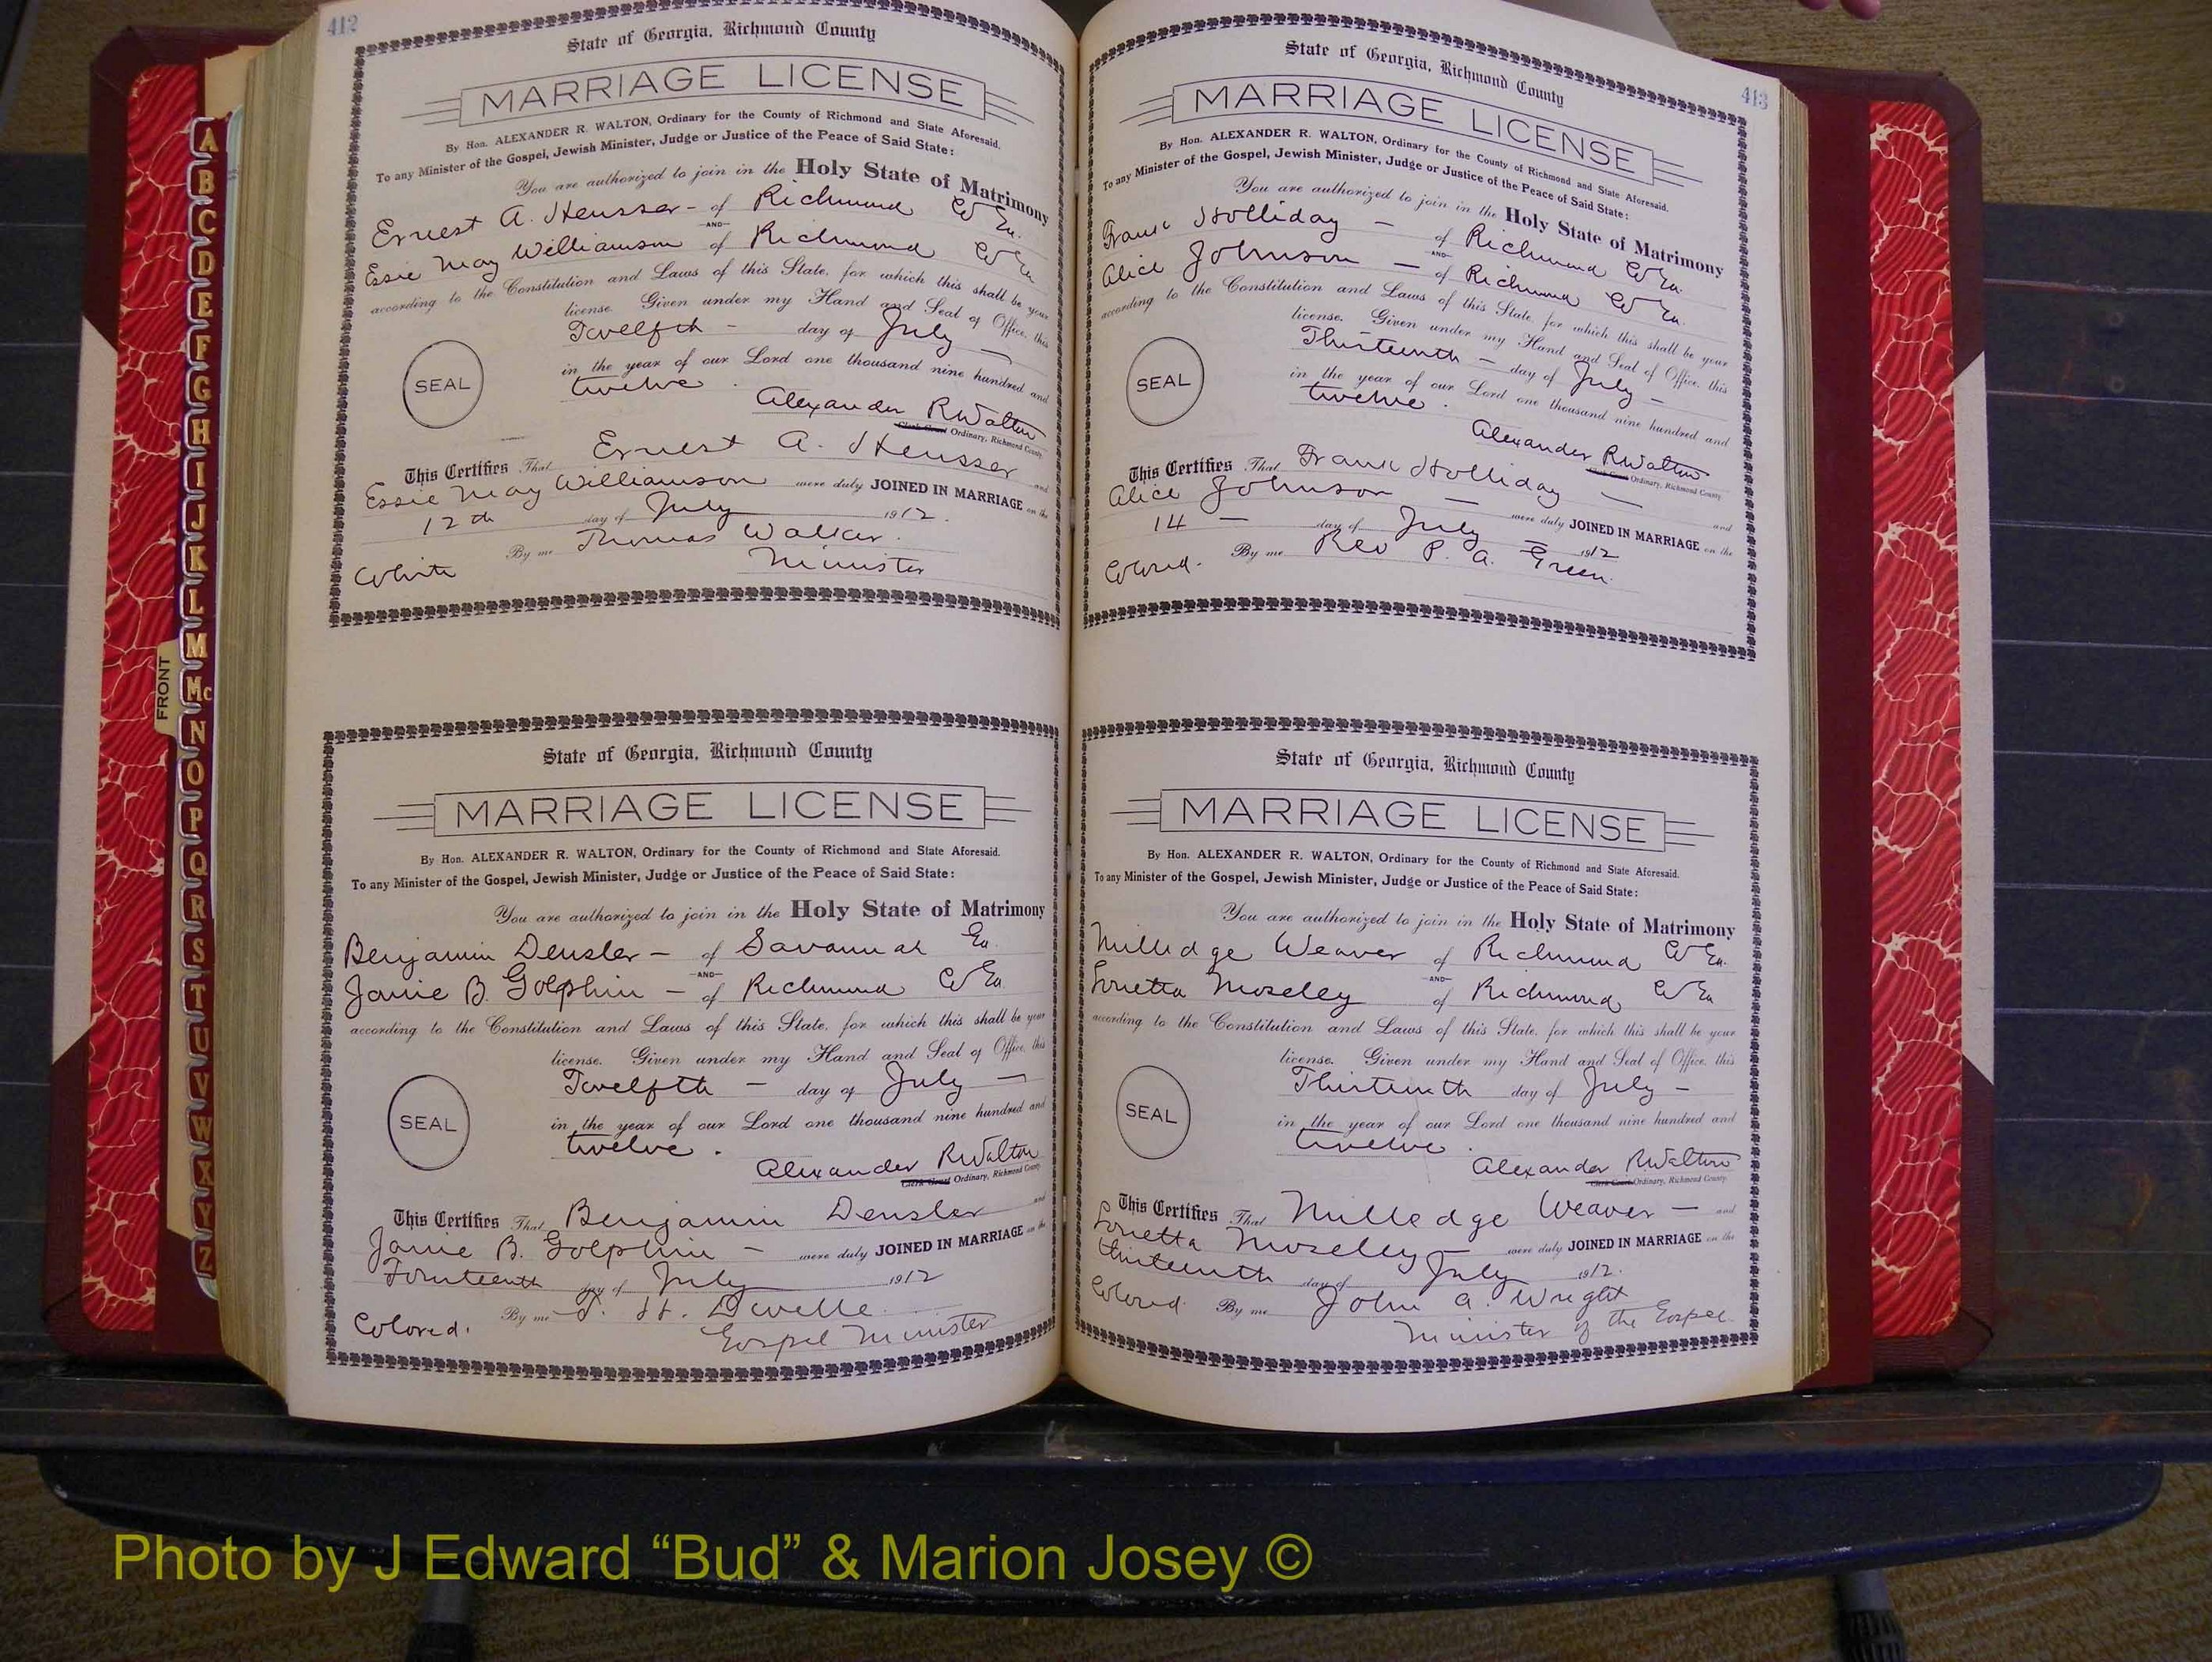 412
State of Georgia, Richmond County
MARRIAGE LICENSE
By Hon. ALEXANDER R. WALTON, Ordinary for the County of Richmond and State Aforesaid.
To any Minister of the Gospel, Jewish Minister, Judge or Justice of the Peace of Said State:
You are authorized to join in the Holy State of Matrimony
Ernest A. Heusser - of Richmond Co Ga.
AND
Essie May Williamson of Richmond Co Ga
according to the Constitution and Laws of this State, for which this shall be your
license. Given under my Hand and Seal of Office, this
Twelfth - day of July -
in the year of our Lord one thousand nine hundred and
twelve.
SEAL
Alexander R Walton
Clerk Court Ordinary, Richmond County.
This Certifies That Ernest A. Heusser and
Essie May Williamson were duly JOINED IN MARRIAGE on the
12th day of July 1912.
By me Thomas Walker.
White Minister
State of Georgia, Richmond County
MARRIAGE LICENSE
By Hon. ALEXANDER R. WALTON, Ordinary for the County of Richmond and State Aforesaid.
To any Minister of the Gospel, Jewish Minister, Judge or Justice of the Peace of Said State:
You are authorized to join in the Holy State of Matrimony
Benjamin Densler - of Savannah Ga.
AND
Janie B. Golphin - of Richmond Co Ga
according to the Constitution and Laws of this State, for which this shall be your
license. Given under my Hand and Seal of Office, this
Twelfth - day of July -
in the year of our Lord one thousand nine hundred and
twelve.
SEAL
Alexander R Walton
Clerk Court Ordinary, Richmond County
This Certifies That Benjamin Densler and
Janie B. Golphin - were duly JOINED IN MARRIAGE on the
Fourteenth day of July 1912
By me
Colored. Gospel Minister
413
State of Georgia, Richmond County
MARRIAGE LICENSE
By Hon. ALEXANDER R. WALTON, Ordinary for the County of Richmond and State Aforesaid.
To any Minister of the Gospel, Jewish Minister, Judge or Justice of the Peace of Said State:
You are authorized to join in the Holy State of Matrimony
Frank Holliday - of Richmond Co Ga.
AND
Alice Johnson - of Richmond Co Ga.
according to the Constitution and Laws of this State, for which this shall be your
license. Given under my Hand and Seal of Office, this
Thirteenth - day of July -
in the year of our Lord one thousand nine hundred and
twelve.
SEAL
Alexander R Walton
Clerk Court Ordinary, Richmond County.
This Certifies That Frank Holliday - and
Alice Johnson - were duly JOINED IN MARRIAGE on the
14 - day of July - 1912
Colored. By me Rev P. A. Green.
State of Georgia, Richmond County
MARRIAGE LICENSE
By Hon. ALEXANDER R. WALTON, Ordinary for the County of Richmond and State Aforesaid.
To any Minister of the Gospel, Jewish Minister, Judge or Justice of the Peace of Said State:
You are authorized to join in the Holy State of Matrimony
Milledge Weaver of Richmond Co Ga.
AND
Loretta Moseley of Richmond Co Ga
according to the Constitution and Laws of this State, for which this shall be your
license. Given under my Hand and Seal of Office, this
Thirteenth day of July -
in the year of our Lord one thousand nine hundred and
twelve.
SEAL
Alexander R Walton
Clerk Court Ordinary, Richmond County.
This Certifies That Milledge Weaver - and
Loretta Moseley - were duly JOINED IN MARRIAGE on the
thirteenth day of July 1912.
Colored. By me John A. Wright
Minister of the Gospel
A
B
C
D
E
F
G
H
I
J
K
L
M
Mc
N
O
P
Q
R
S
T
U
V
W
X
Y
Z
FRONT
Photo by J Edward “Bud” & Marion Josey ©